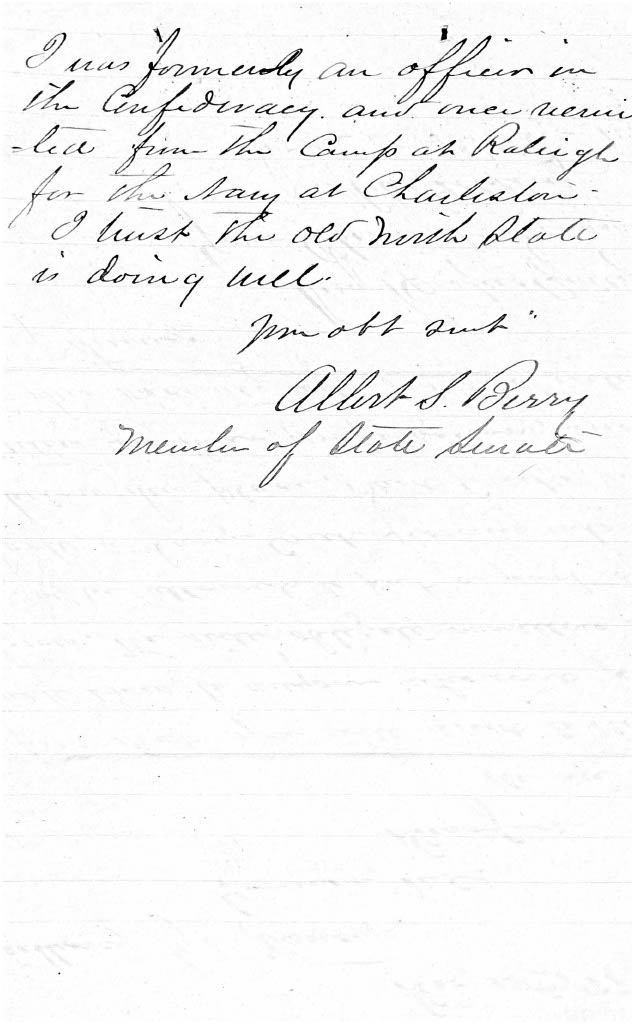 I was formerly an officer in
the Confederacy and once recrui
-ted from the Camp at Raleigh
for the Navy at Charleston.
I trust the old North State
is doing well.
Your obt servt
Albert S. Berry
Member of State Senate